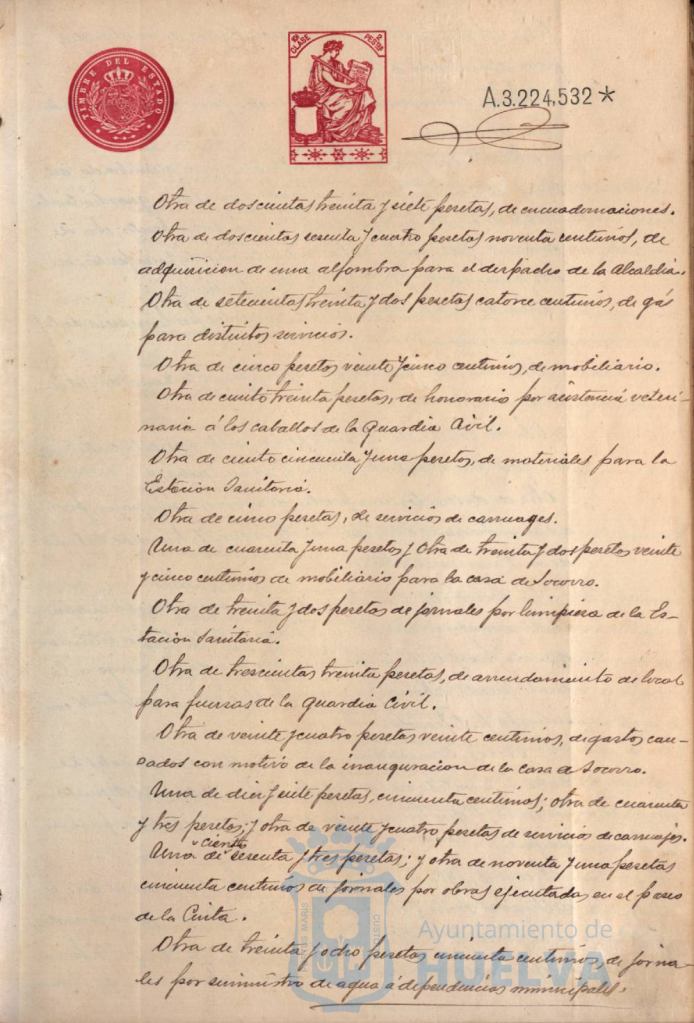 TIMBRE DEL ESTADO
10ª CLASE 2 PESETAS
A.3.224,532*
Otra de doscientas treinta y siete pesetas, de encuadernaciones.
Otra de doscientas sesenta y cuatro pesetas noventa centimos, de
adquisicion de una alfombra para el despacho de la Alcaldia.
Otra de setecientas treinta y dos pesetas catorce centimos, de gás
para distintos servicios.
Otra de cinco pesetas veinte y cinco centimos, de mobiliario.
Otra de ciento treinta pesetas, de honorario por asistencia veteri-
naria á los caballos de la Guardia Civil.
Otra de ciento cincuenta y una pesetas, de materiales para la
Estacion Sanitaria.
Otra de cinco pesetas, de servicios de carruages.
Una de cuarenta y una pesetas y otra de treinta y dos pesetas veinte
y cinco centimos de mobiliario para la casa de Socorro.
Otra de treinta y dos pesetas de jornales por limpieza de la Es-
tacion Sanitaria.
Otra de trescientas treinta pesetas, de arrendamiento de local
para fuerzas de la guardia Civil.
Otra de veinte y cuatro pesetas veinte centimos, de gastos cau-
sados con motivo de la inauguracion de la casa de Socorro.
Una de diez y siete pesetas, cincuenta centimos; otra de cuarenta
y tres pesetas; y otra de veinte y cuatro pesetas de servicios de carruajes.
Una de ciento sesenta y tres pesetas; y otra de noventa y una pesetas
cincuenta centimos de jornales por obras ejecutadas en el paseo
de la Cinta.
Otra de treinta y ocho pesetas cincuenta centimos, de jorna-
les por suministro de agua á dependencias municipales.
Ayuntamiento de
HUELVA